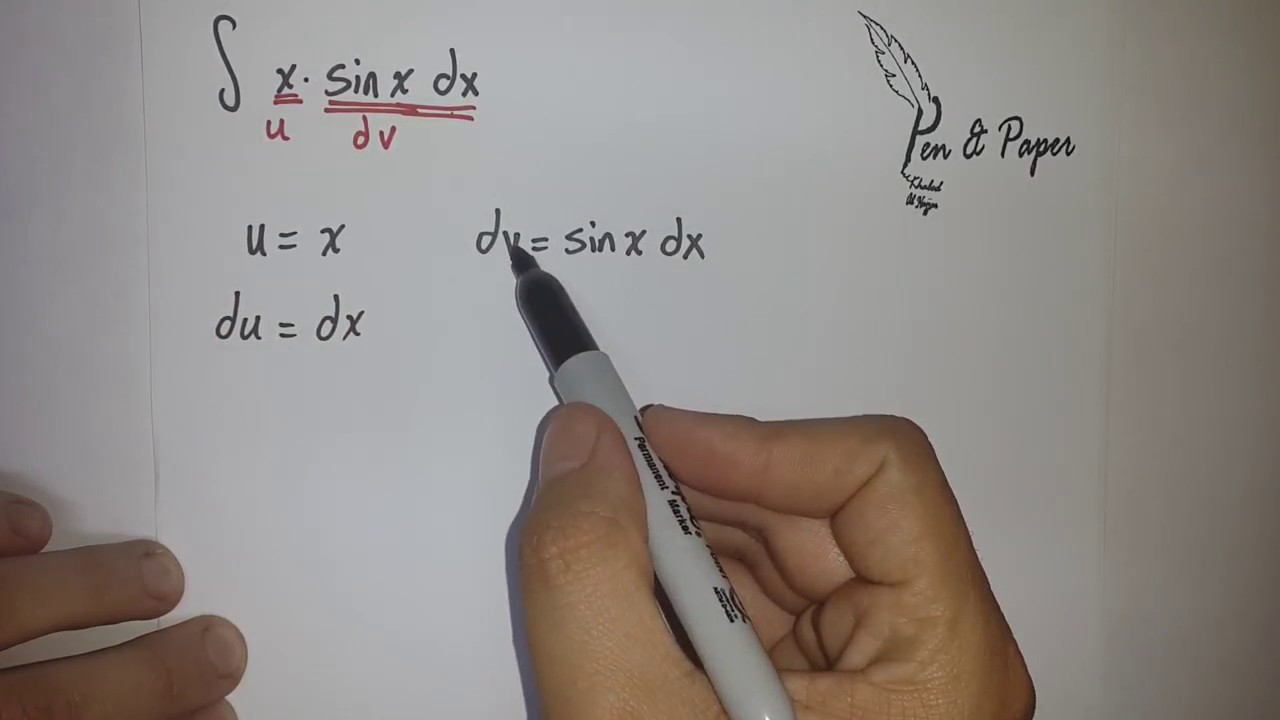 ∫ x · sin x dx
u dv
Pen & Paper
Khaled
Al Najjar
u = x dv = sin x dx
du = dx
Permanent Marker